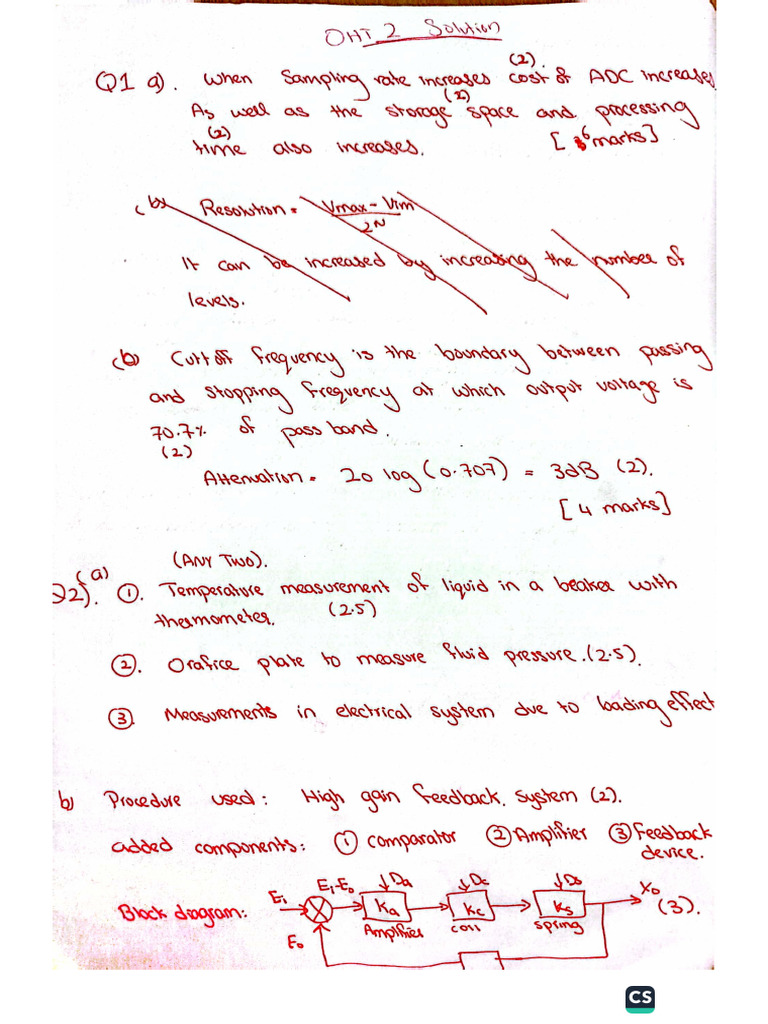 OHT 2 Solution
(2).
Q1 a). When Sampling rate increases cost of ADC increases
(2)
As well as the storage space and processing
(2)
time also increases. [ 6 marks]
(b) Resolution = Vmax - Vim
2N
It can be increased by increasing the number of
levels.
(b) Cuttoff frequency is the boundary between passing
and stopping frequency at which output voltage is
70.7% of pass band.
(2)
Attenuation = 20 log (0.707) = 3dB (2).
[ 4 marks]
(ANY TWO).
Q2). (a) ①. Temperature measurement of liquid in a beaker with
thermometer. (2.5)
②. Orafice plate to measure fluid pressure. (2.5).
③ Measurements in electrical system due to loading effect
b) Procedure used: High gain feedback system (2).
added components: ① comparator ② Amplifier ③ Feedback
device.
Block diagram: Ei Ei-Eo Da Dc Ds Xo
Ka Kc Ks (3).
Amplifier coil spring
Eo
CS